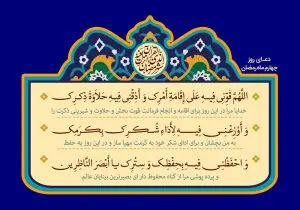 دعای روز
چهارم ماه رمضان
اللهُمَّ قَوِّنِی فِیهِ عَلَی إِقَامَةِ أَمْرِکَ وَ أَذِقْنِی فِیهِ حَلاوَةَ ذِکْرِکَ
خدایا مرا در این روز برای اقامه و انجام فرمانت قوت بخش و حلاوت و شیرینی ذکرت را
وَ أَوْزِعْنِی فِیهِ لِأَدَاءِ شُکْرِکَ بِکَرَمِکَ
به من بچشان و برای ادای شکر خود به کرمت مهیا ساز و در این روز به حفظ
وَ احْفَظْنِی فِیهِ بِحِفْظِکَ وَ سِتْرِکَ یَا أَبْصَرَ النَّاظِرِینَ
و پرده پوشی مرا از گناه محفوظ دار ای بصیرترین بینایان عالم.